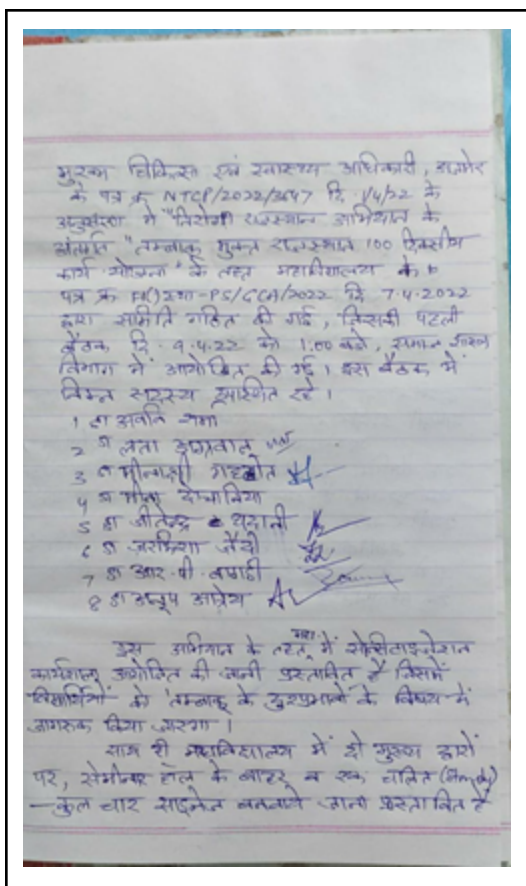 मुख्य चिकित्सा एवं स्वास्थ्य अधिकारी, अजमेर
के पत्र क्र NTCP/2022/3647 दि 1/4/22 के
अनुसरण में "निरोगी राजस्थान अभियान के
अंतर्गत "तम्बाकू मुक्त राजस्थान 100 दिवसीय
कार्य योजना" के तहत महाविद्यालय के
पत्र क्र 2022 दि 7-4-2022
द्वारा समिति गठित की गई, जिसकी पहली
बैठक दि. 9.4.22 को 1:00 बजे, समाज शास्त्र
विभाग में आयोजित की गई। इस बैठक में
निम्न सदस्य उपस्थित रहे।
1 डा
2 डा लता अग्रवाल
3 डा मीनाक्षी गहलोत
4 डा
5 डा जीतेन्द्र थदानी
6 डा
7 डा आर. पी.
8 डा अनूप आत्रेय
इस अभियान के तहत में सेन्सीटाइजेशन
कार्यशाला आयोजित की जानी प्रस्तावित है जिसमें
विद्यार्थियों को तम्बाकू के दुष्प्रभावों के विषय में
जागरूक किया जाएगा।
साथ ही महाविद्यालय में दो मुख्य द्वारों
पर, सेमीनार हॉल के बाहर व एक चलित
- कुल चार साइनेज बनवाये जाना प्रस्तावित है